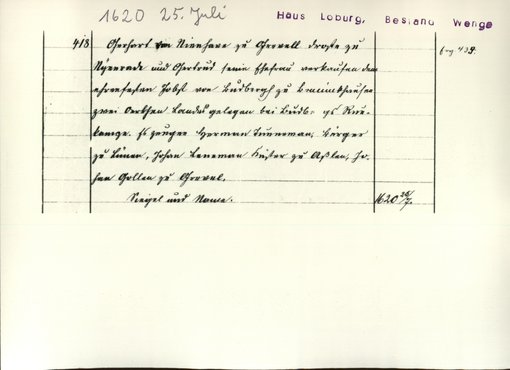 1620 25. Juli
Haus Loburg, Bestand Wenge
418. Gerhart von Nivehave zu Grevell droste zu
Nyenrade und Gertrud seine Ehefrau verkaufen dem
ehrenfesten Jobst von Budbergh zu Brünninkhausen
zwei Stücke Landes gelegen bei
Zeugen Herman Timmerman, Bürger
zu Lünen, Johan Leneman Küster zu Aßlen, Jo-
han Gollen zu Grevel.
Siegel und Name.
1620 25/7.